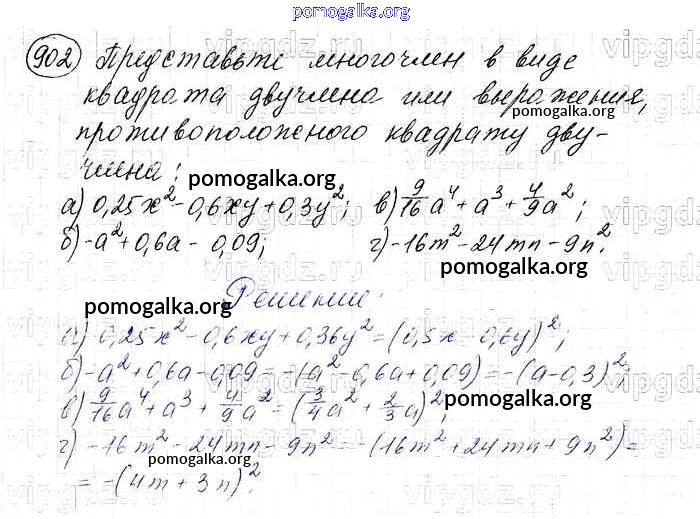 pomogalka.org
902 Представьте многочлен в виде
квадрата двучлена или выражения,
pomogalka.org
противоположеного квадрату дву-
члена:
pomogalka.org
а) 0,25x² - 0,6xy + 0,3y²; в) 9/16a⁴ + a³ + 4/9a²;
б) -a² + 0,6a - 0,09; г) -16m² - 24mn - 9n².
pomogalka.org
Решение:
pomogalka.org
а) 0,25x² - 0,6xy + 0,36y² = (0,5x - 0,6y)²;
б) -a² + 0,6a - 0,09 = -(a² - 0,6a + 0,09) = -(a - 0,3)²;
pomogalka.org
в) 9/16a⁴ + a³ + 4/9a² = (3/4a² + 2/3a)²;
pomogalka.org
г) -16m² - 24mn - 9n² = -(16m² + 24mn + 9n²) =
pomogalka.org
= -(4m + 3n)².